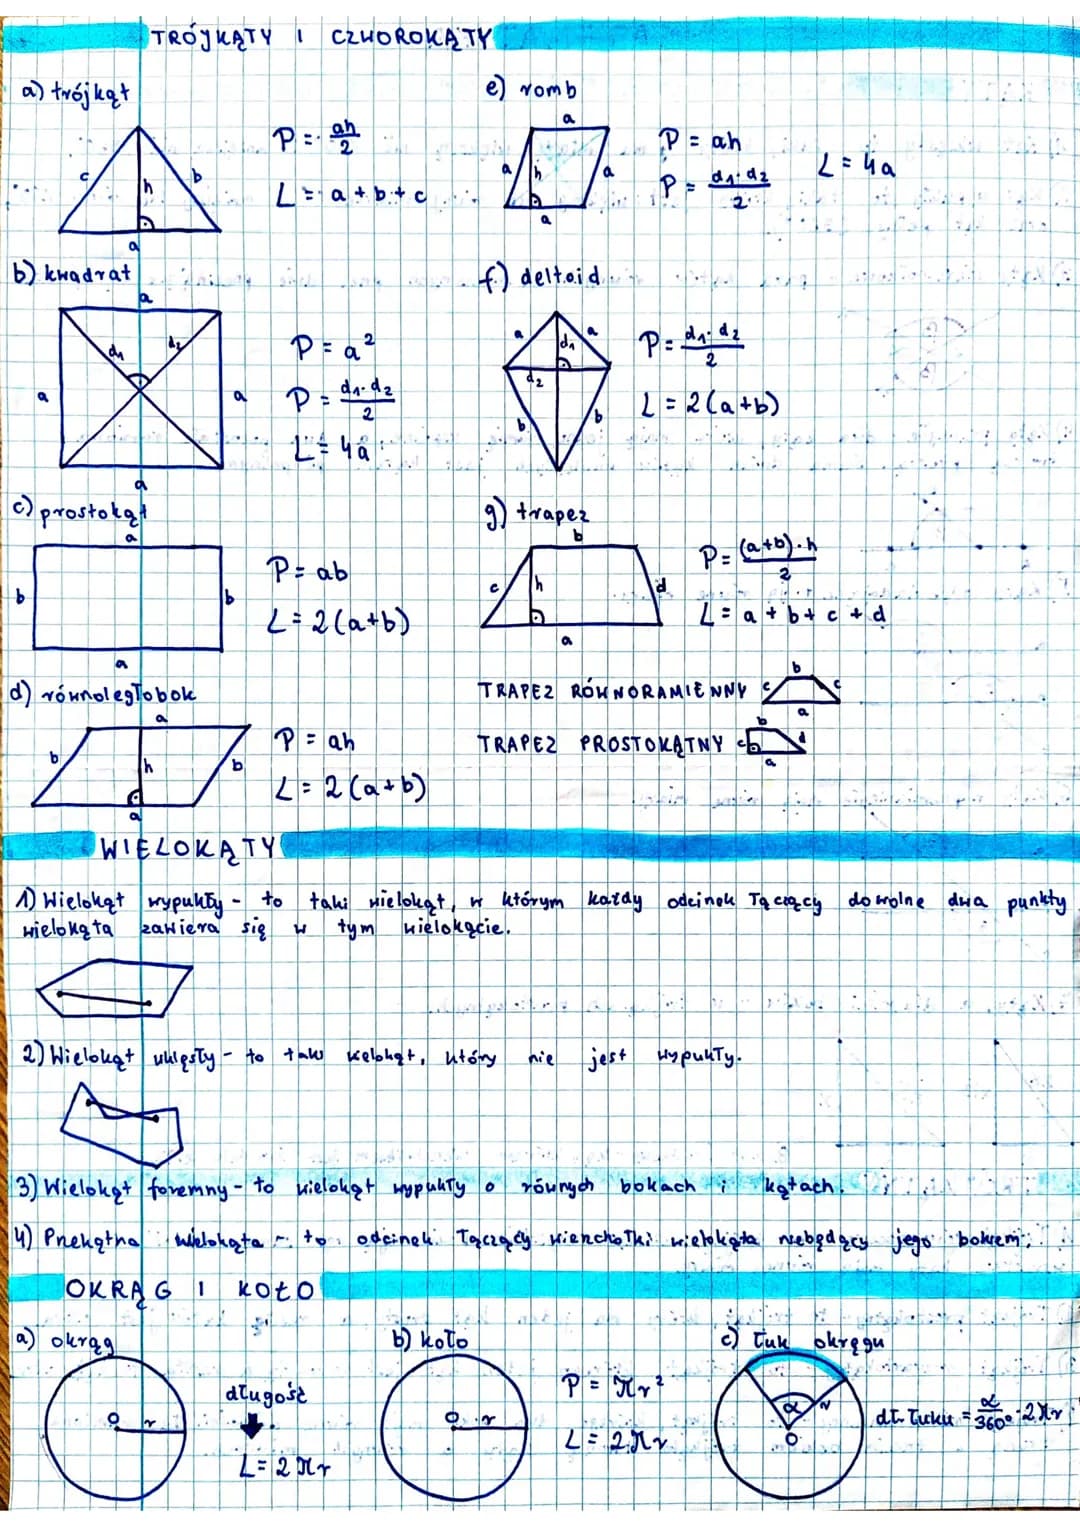 TRÓJKĄTY I CZWOROKĄTY
a) trójkąt
c
h
b
a
P = ah/2
L = a + b + c
b) kwadrat
a
d₁
d₂
a
a
a
P = a²
P = d₁·d₂/2
L = 4a
c) prostokąt
a
b
b
a
P = ab
L = 2(a+b)
d) równoległobok
a
b
h
b
a
P = ah
L = 2(a+b)
e) romb
a
a
h
a
a
P = ah
P = d₁·d₂/2
L = 4a
f) deltoid
a
a
d₁
d₂
b
b
P = d₁·d₂/2
L = 2(a+b)
g) trapez
b
c
h
d
a
P = (a+b)·h/2
L = a + b + c + d
TRAPEZ RÓWNORAMIENNY
b
c
c
a
TRAPEZ PROSTOKĄTNY
b
c
d
a
WIELOKĄTY
1) Wielokąt wypukły - to taki wielokąt, w którym każdy odcinek łączący dowolne dwa punkty
wielokąta zawiera się w tym wielokącie.
2) Wielokąt wklęsły - to taki wielokąt, który nie jest wypukły.
3) Wielokąt foremny - to wielokąt wypukły o równych bokach i kątach.
4) Przekątna wielokąta - to odcinek łączący wierzchołki wielokąta niebędący jego bokiem.
OKRĄG I KOŁO
a) okrąg
O
r
długość
L = 2πr
b) koło
O
r
P = πr²
L = 2πr
c) łuk okręgu
α
r
O
dł. łuku = α/360° · 2πr